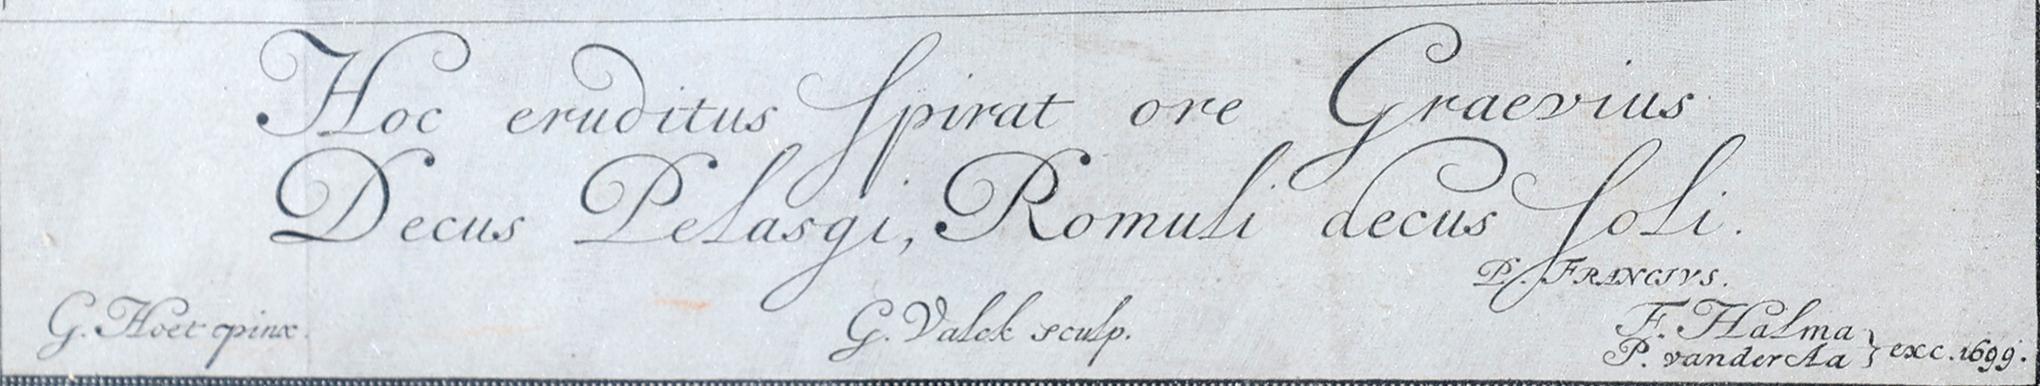 Hoc eruditus spirat ore Graevius
Decus Pelasgi, Romuli decus soli.
P. FRANCIVS.
G. Hoet pinx.
G. Valck sculp.
F. Halma
P. vander Aa } exc. 1699.